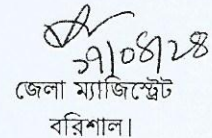 ২৭/০৪/২৪
জেলা ম্যাজিস্ট্রেট
বরিশাল।